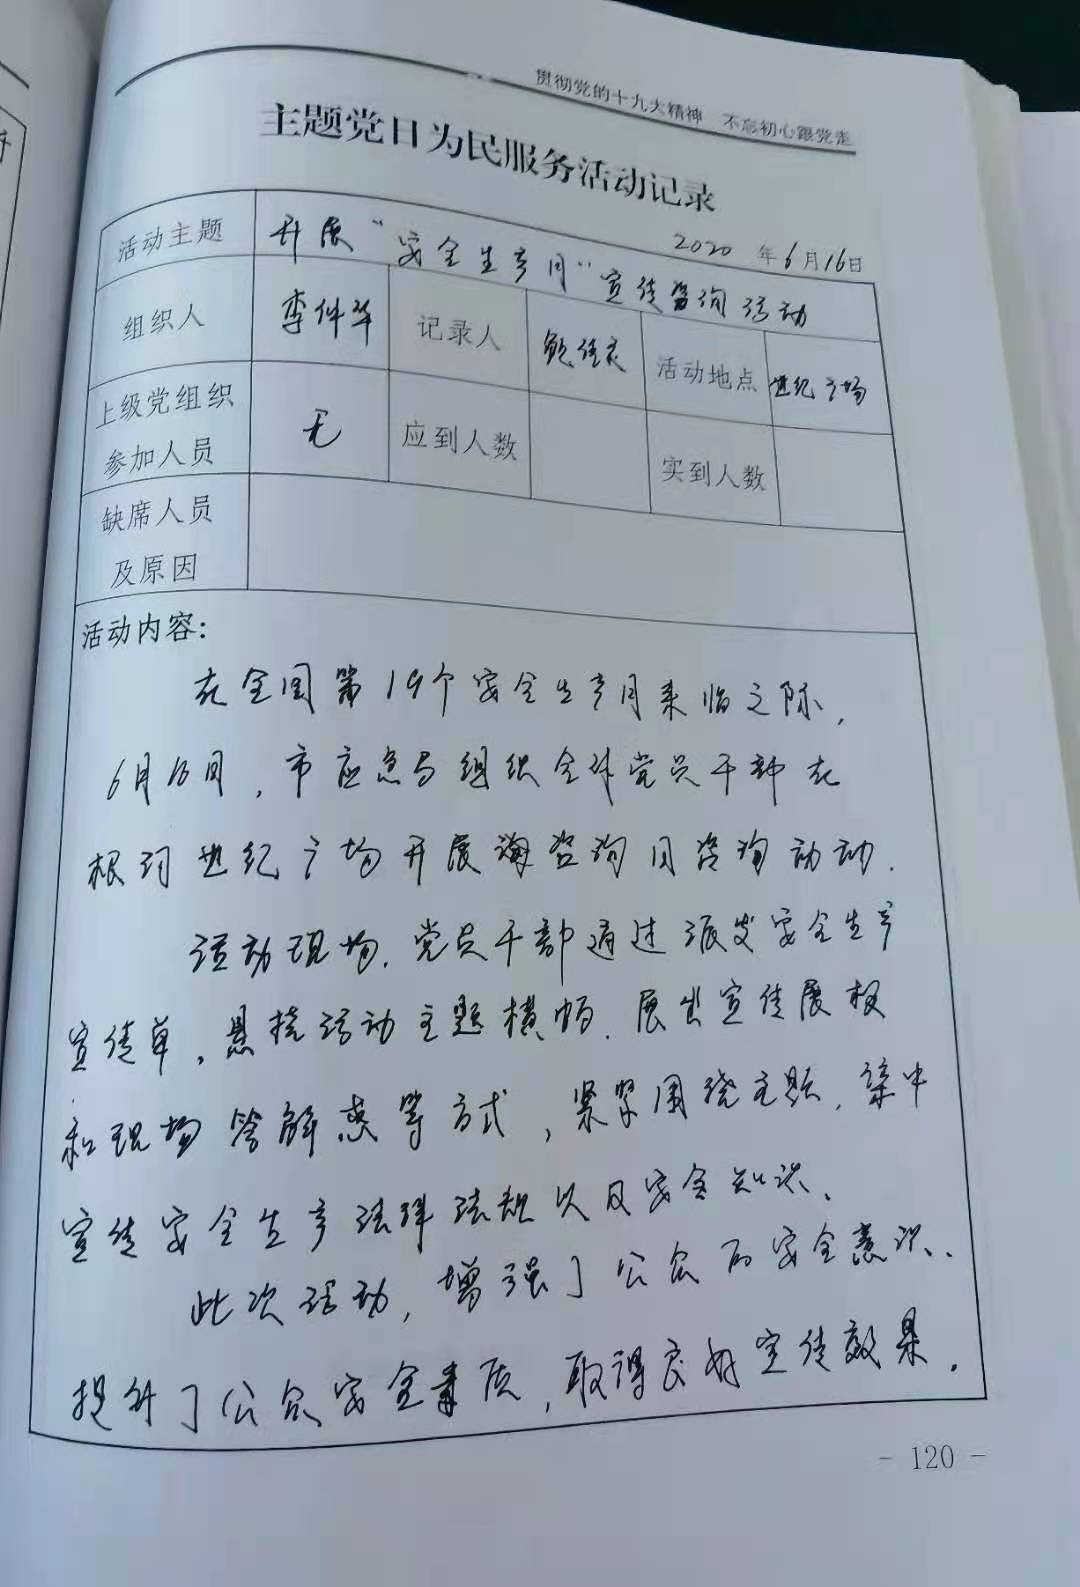 贯彻党的十九大精神 不忘初心跟党走
主题党日为民服务活动记录
2020年6月16日
活动主题 开展“安全生产月”宣传咨询活动
组织人 李 华 记录人 活动地点 世纪广场
上级党组织参加人员 无 应到人数 实到人数
缺席人员及原因
活动内容：
在全国第19个安全生产月来临之际，
6月16日，市应急局组织全体党员干部在
世纪广场开展 咨询日咨询活动.
活动现场，党员干部通过派发安全生产
宣传单，悬挂活动主题横幅、展出宣传展板
和现场答解惑等方式，紧紧围绕主题，集中
宣传安全生产法律法规以及安全知识、
此次活动，增强了公众的安全意识、
提升了公众安全素质，取得良好宣传效果.
- 120 -